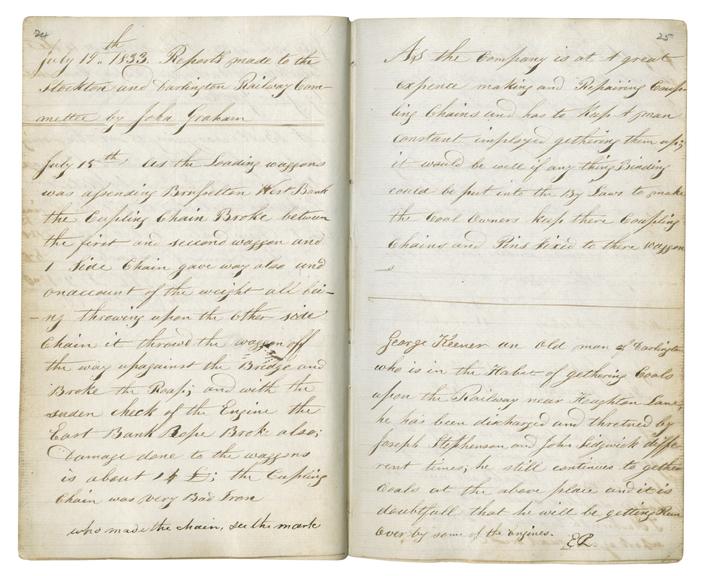 24
July 19th 1833. Reports made to the
Stockton and Darlington Railway Com-
mettee by John Graham
July 15th As the Loading waggons
was assending Brusselton West Bank
the Cupling Chain Broke between
the first and second waggon and
1 Side Chain gave way also and
onaccount of the weight all bei-
-ng throwing upon the other side
Chain it throwd the waggon off
the way upagainst the Bridge and
Broke the Roap; and with the
suden check of the Engine the
East Bank Rope Broke also;
Damage done to the waggons
is about 14 £; the Cupling
Chain was very Bad Iron
who made the chain, see the mark
25
As the Company is at A great
expence making and Repairing Coup-
ling Chains and has to Keep A man
constant imployed gethering them up;
it would be well if any thing Binding
could be put into the By Laws to make
the Coal Owners keep there Coupling
Chains and Pins fixed to there waggon
-s
George Keener an old man of Darlington
who is in the Habet of gethering Coals
upon the Railway near Heughton Lane;
he has been discharged and thretned by
Joseph Stephenson and John Sedgwick diffe
rent times; he still continues to gether
Coals at the above place and it is
doubtfull that he will be getting Run
Over by some of the engines.